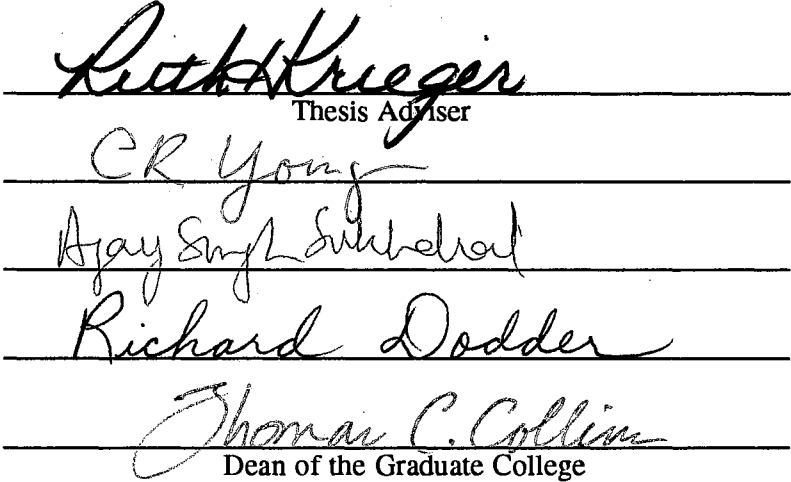 Ruth Krieger
Thesis Adviser
CR Young
Ajay Singh
Richard Dodder
Thomas C. Collins
Dean of the Graduate College